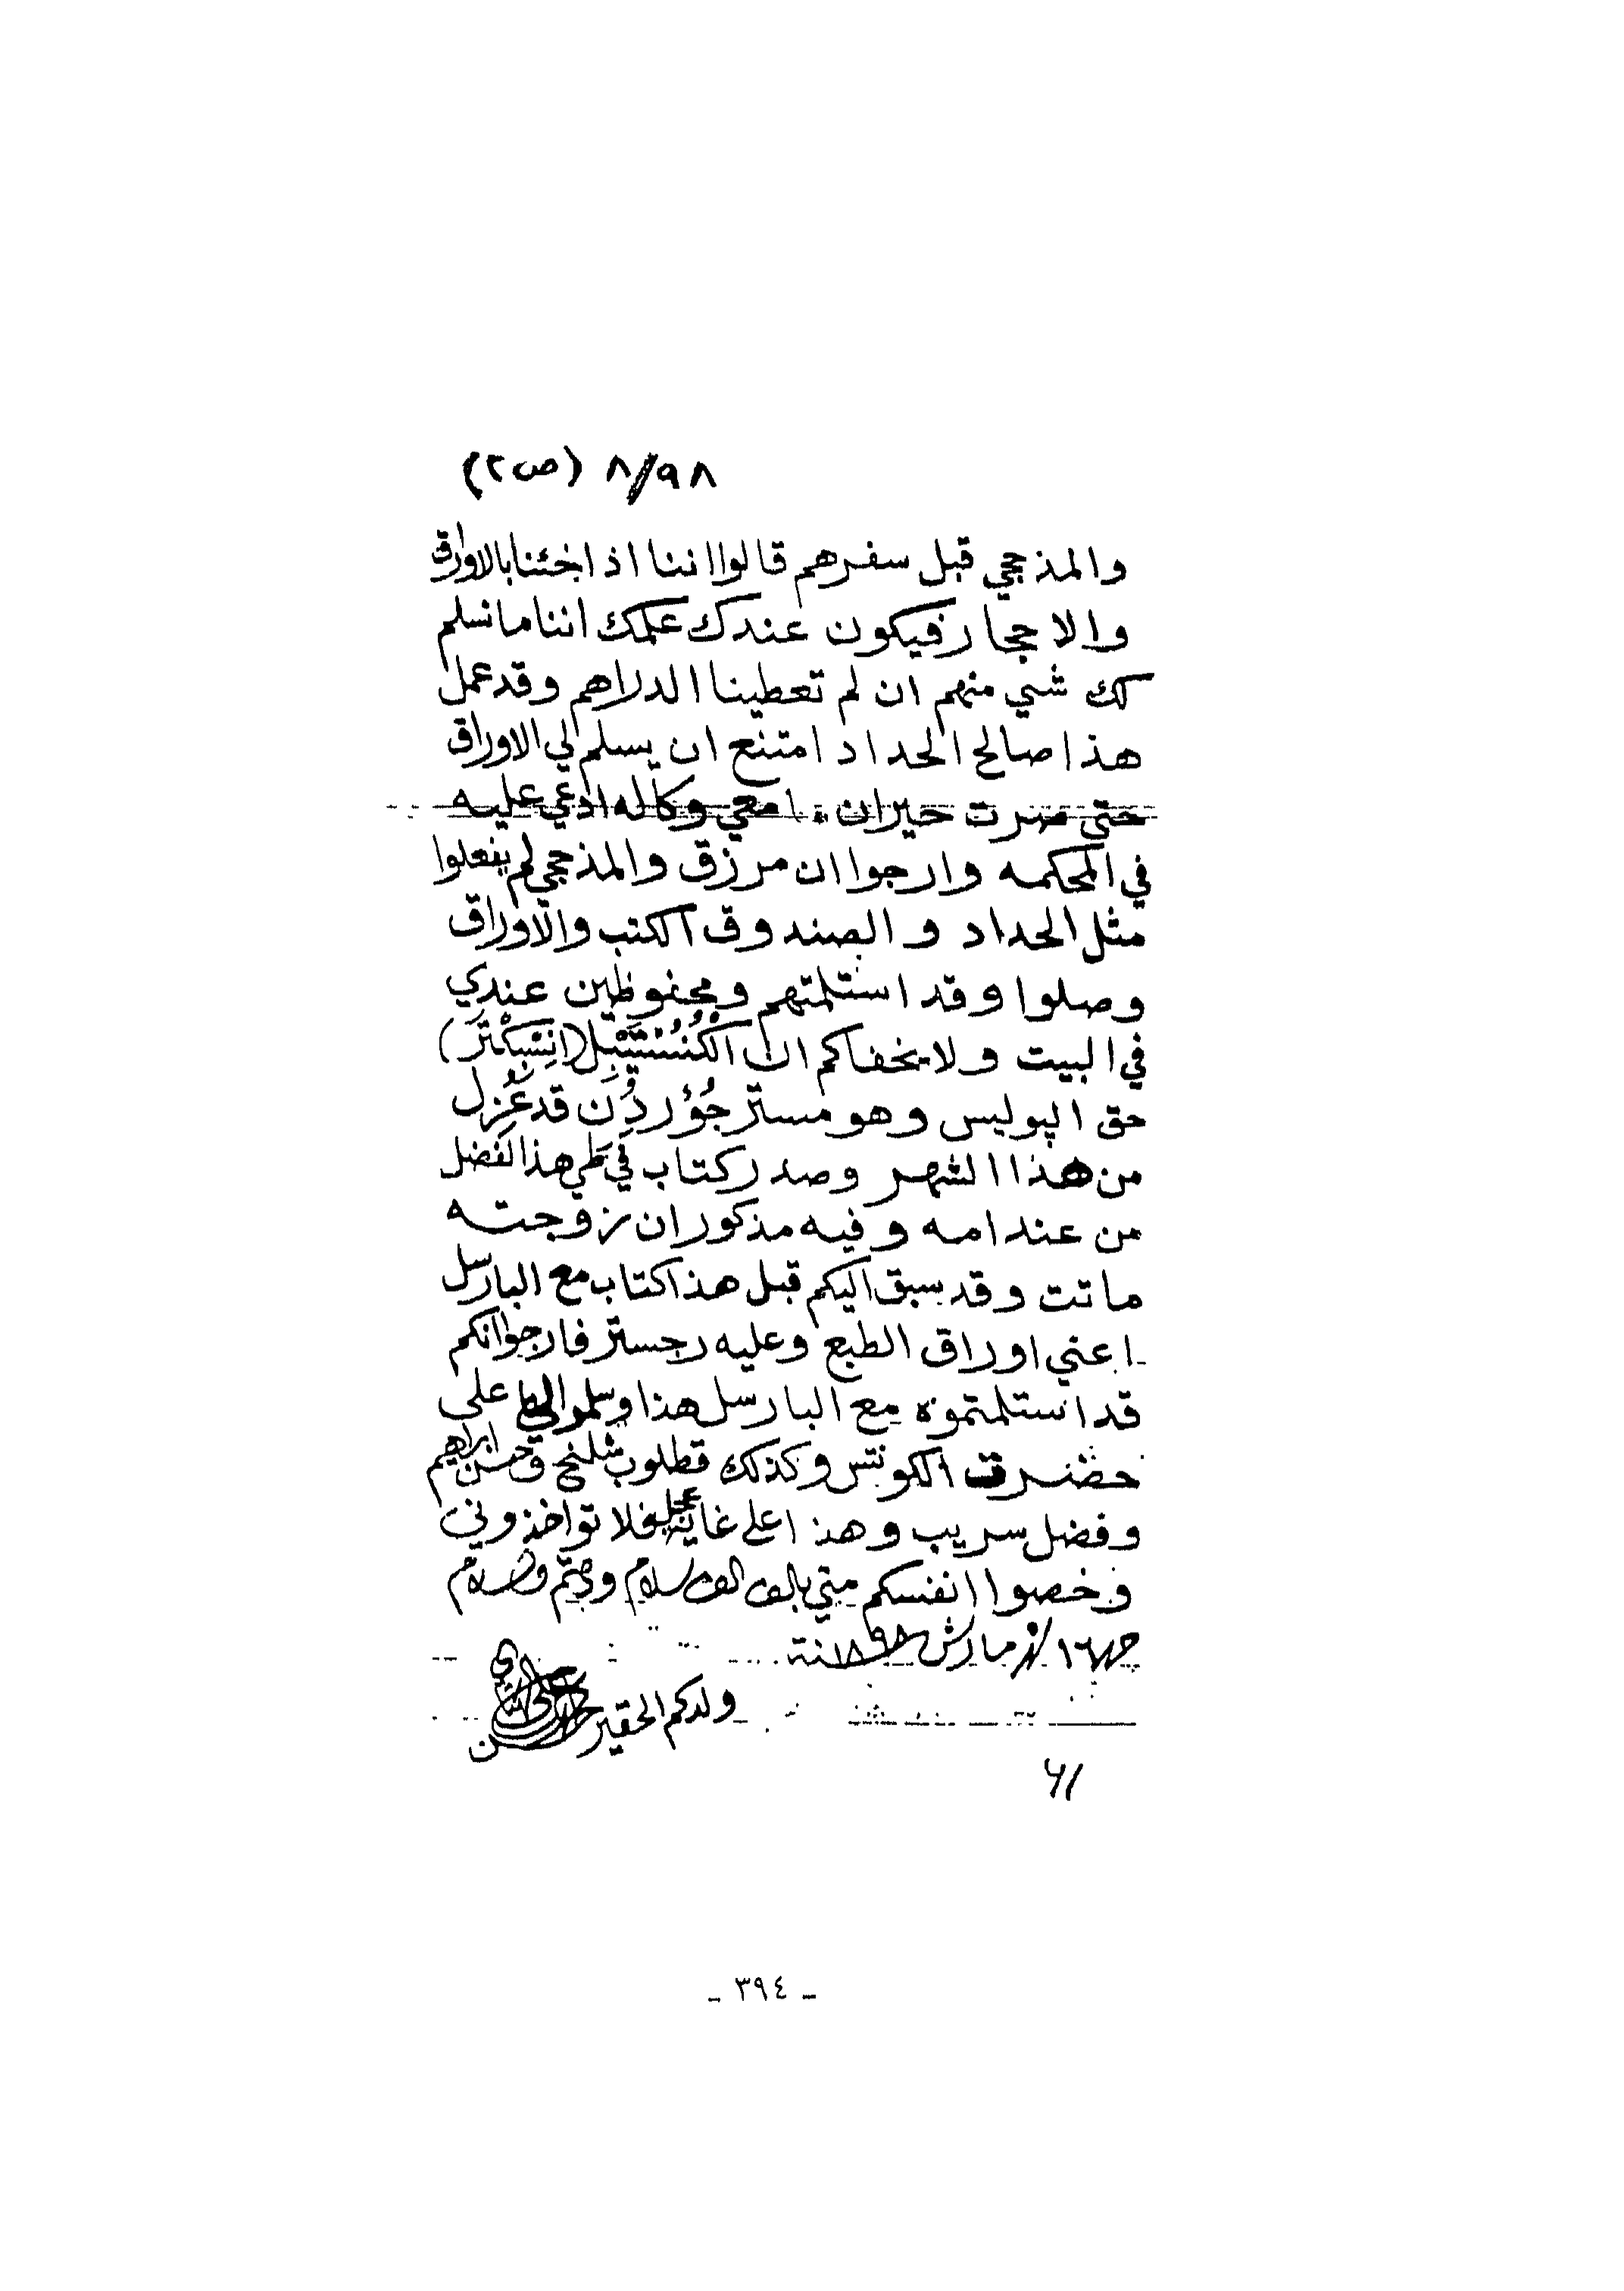 ٨/٩٨ (ص٢)
والمذحجي قبل سفرهم قالوا اننا اذا جئنا بالاوراق
والاحجار فيكون عندك علمك اننا ما نسلم
لك شي منهم ان لم تعطينا الدراهم وقد عمل
هذا صالح الحداد امتنع ان يسلم لي الاوراق
حتى صرت حيران ما معي وكاله ادعي عليه
في المحكمه وارجوا ان مرزق والمذحجي لم يفعلوا
مثل الحداد والصندوق الكتب والاوراق
وصلوا وقد استلمتهم ومحفوظين عندي
في البيت ولا يخفاكم ان الكُنُسْتَيْبِل (اِنِسْبِكْتَر)
حق الپوليس وهو مستر جُؤردُن قد عُزِل
من هذا الشهر وصدر كتاب في طي هذا لفضل
من عند امه وفيه مذكور ان زوجته
ماتت وقد سبق اليكم قبل هذا كتاب مع البارسل
اعني اوراق الطبع وعليه رجستر فارجوا انكم
قد استلمتموه مع البارسل هذا وسلموا لي على
حضرت الكونتس وكذلك قطلوب شلنج وحسن ابراهيم
وفضل سريب وهذا على غاية عجل فلا تواخذوني
وخصوا انفسكم مني بالف الف سلام ودمتم والسلام
١٦ شهر مارش سنة ١٨٩٨
ولدكم الحقير
٦١
- ٣٩٤ -